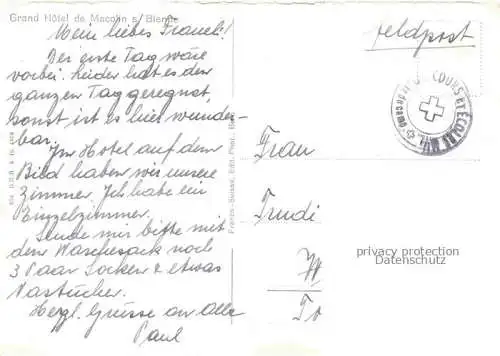 Grand Hôtel de Macolin s/ Bienne
Mein liebes Fraueli!
Der erste Tag wäre
vorbei. Leider hat es den
ganzen Tag geregnet,
sonst ist es hier wunder-
bar.
Im Hotel auf dem
Bild haben wir unsere
Zimmer. Ich habe ein
Einzelzimmer.
Sende mir bitte mit
dem Wäschesack noch
3 Paar Socken & etwas
Nastücher.
Herzl. Grüsse an Alle
Paul
Franco-Suisse, Edit. Phot.
Feldpost
COURS ET ÉCOLES
Frau
Trudi
privacy protection
Datenschutz